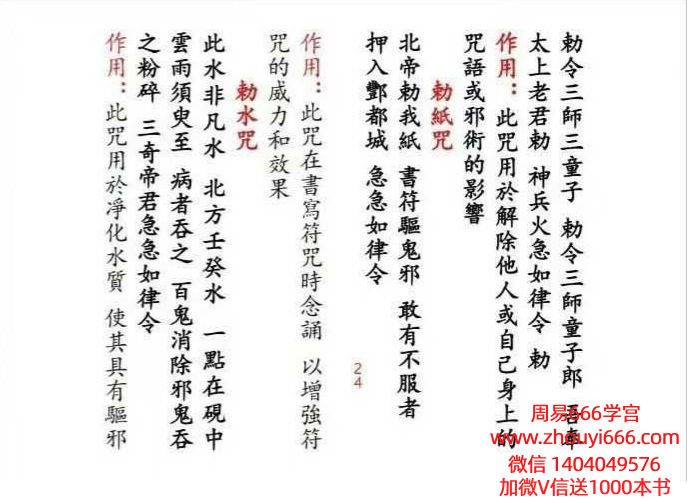 勅令三師三童子 勅令三師童子郎 吾奉
太上老君勅 神兵火急如律令 勅
作用：此咒用於解除他人或自己身上的
咒語或邪術的影響
勅紙咒
北帝勅我紙 書符驅鬼邪 敢有不服者
押入酆都城 急急如律令
24
作用：此咒在書寫符咒時念誦 以增強符
咒的威力和效果
勅水咒
此水非凡水 北方壬癸水 一點在硯中
雲雨須臾至 病者吞之 百鬼消除邪鬼吞
之粉碎 三奇帝君急急如律令
作用：此咒用於淨化水質 使其具有驅邪
周易666学宫
www.zhouyi666.com
微信 1404049576
加微V信送1000本书